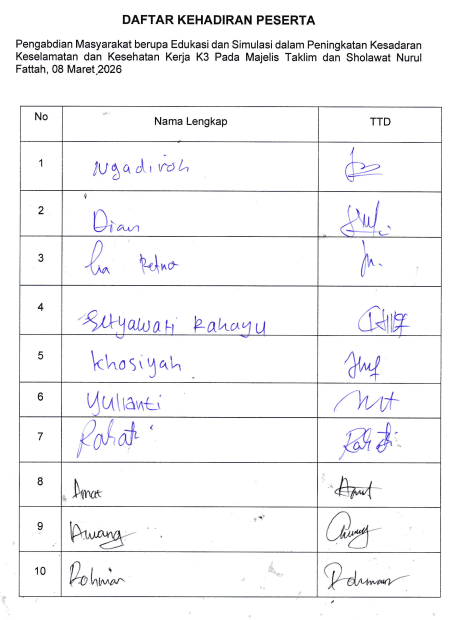 DAFTAR KEHADIRAN PESERTA
Pengabdian Masyarakat berupa Edukasi dan Simulasi dalam Peningkatan Kesadaran
Keselamatan dan Kesehatan Kerja K3 Pada Majelis Taklim dan Sholawat Nurul
Fattah, 08 Maret 2026
No Nama Lengkap TTD
1 Ngadiroh
2 Dian
3 Retno
4 Setyawati Rahayu
5 Khosiyah
6 Yulianti
7 Rahati
8 Amat
9 Awang
10 Rohman